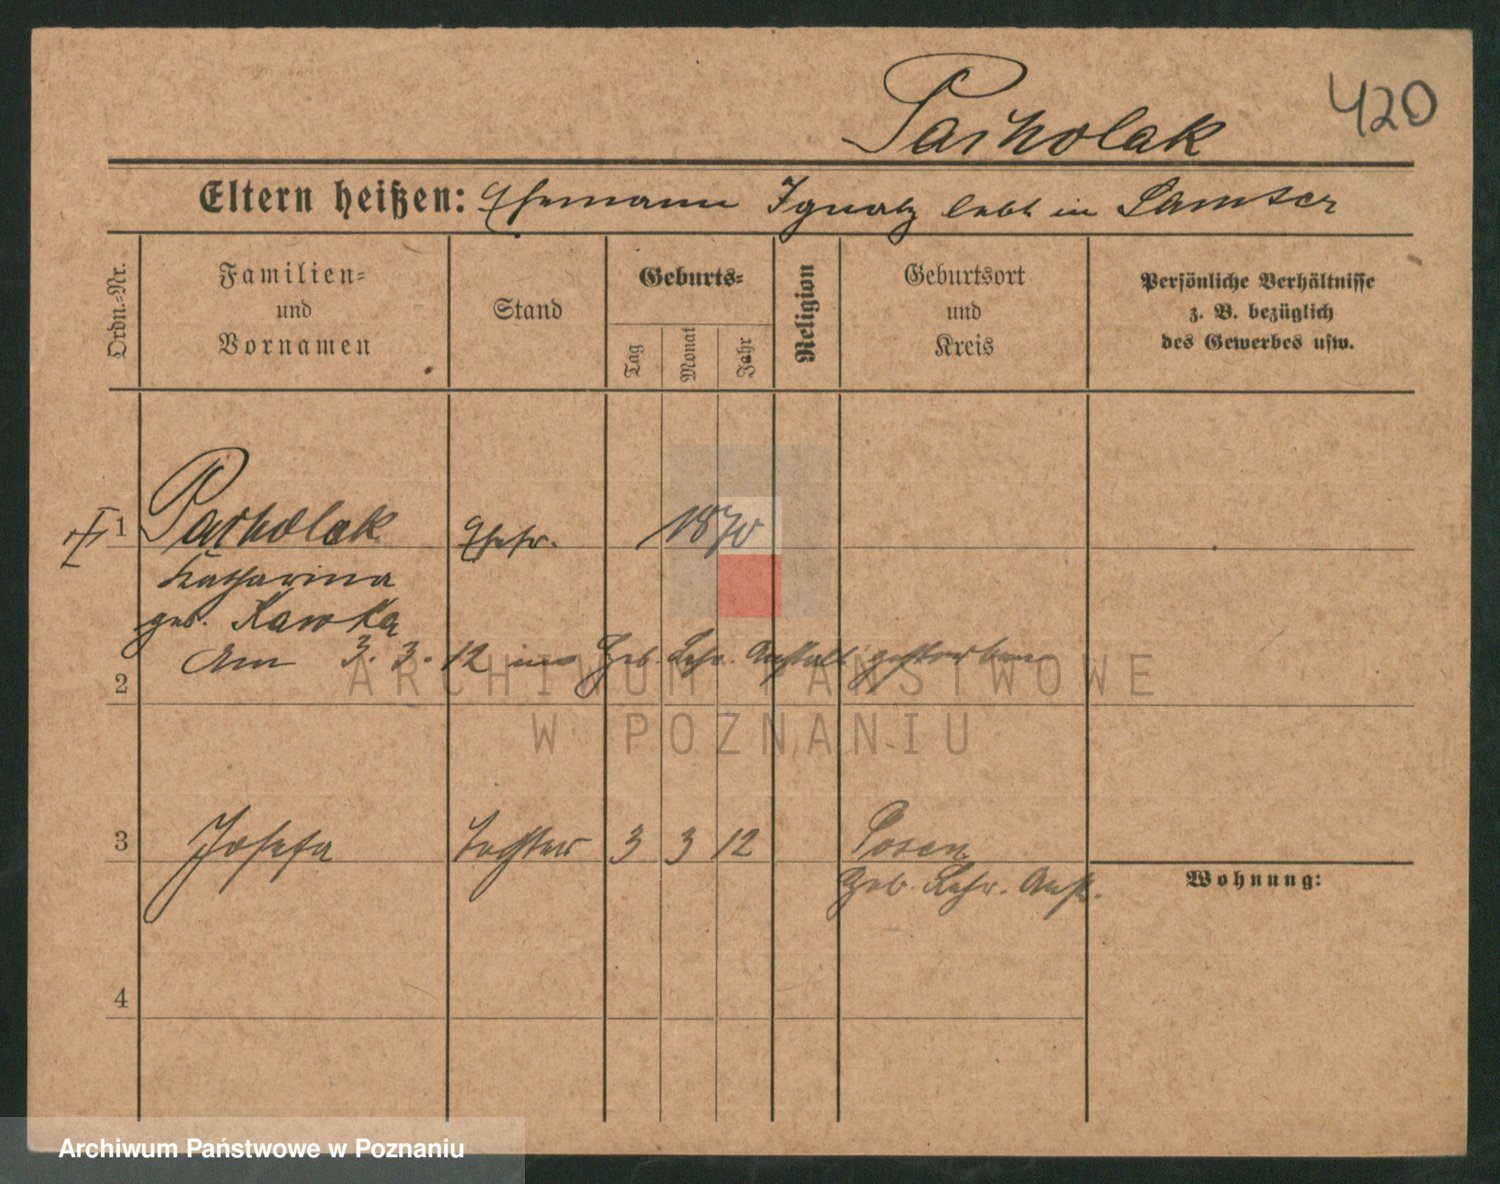 420
Parholak
Eltern heißen: Ehemann Ignatz lebt in Samter
Ordn.=Nr.
Familien=
und
Vornamen
Stand
Geburts=
Tag
Monat
Jahr
Religion
Geburtsort
und
Kreis
Persönliche Verhältnisse
z. B. bezüglich
des Gewerbes usw.
1 Parholak Ehefr. 1870
Katharina
geb. Kawka
Am 3. 3. 12 in Heb. Lehr. Anstalt gestorben
2
3 Josefa Tochter 3 3 12 Posen
Heb. Lehr. Anst.
Wohnung:
4
ARCHIWUM PAŃSTWOWE
W POZNANIU
Archiwum Państwowe w Poznaniu